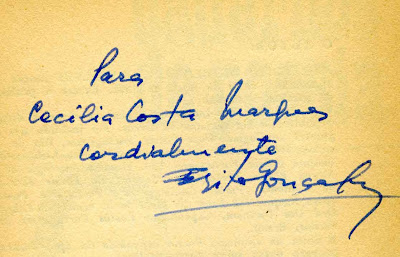 Para
Cecilia Costa Marques
cordialmente
Egito Gonçalves